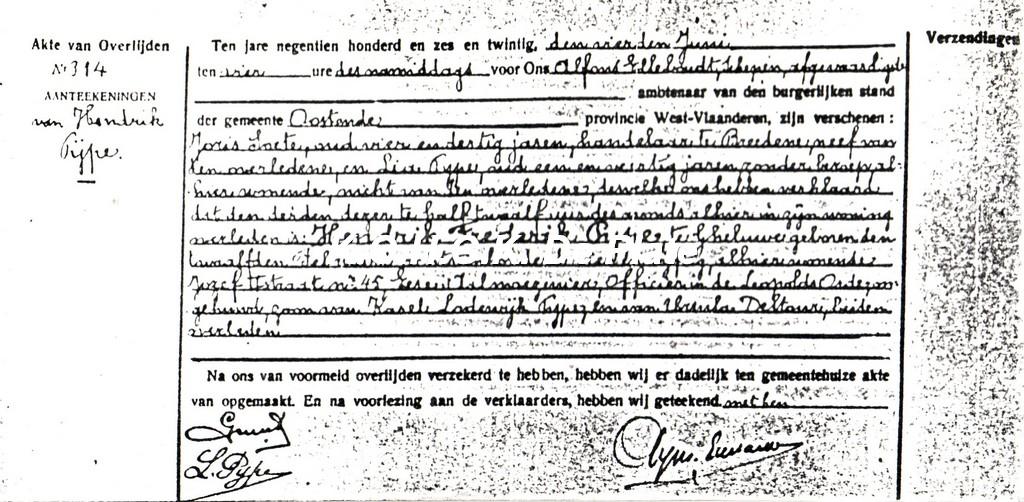 Akte van Overlijden
Nr 314
AANTEEKENINGEN
van Hendrik
Pype.
Ten jare negentien honderd en zes en twintig, den vierden Juni
ten vier ure des namiddags voor Ons Alfons Ellebaudt, schepen, afgevaardigde
ambtenaar van den burgerlijken stand
der gemeente Oostende provincie West-Vlaanderen, zijn verschenen :
Joris oud vier en dertig jaren, handelaar te Breedene, neef van
den overledene, en Pype, oud een en veertig jaren, zonder beroep, al-
hier wonende, nicht van den overledene, dewelke ons hebben verklaard
dat den derden dezer te half twaalf ure des avonds alhier in zijn woning
overleden is: Hendrik Frederik Pype, te Gheluwe geboren den
twaalfden alhier wonende
Jozef II straat nr 45, Officier in de Leopolds Orde, on-
gehuwd, zoon van Karel Lodewijk Pype, en van Ursula beiden
overleden
Na ons van voormeld overlijden verzekerd te hebben, hebben wij er dadelijk ten gemeentehuize akte
van opgemaakt. En na voorlezing aan de verklaarders, hebben wij geteekend met hen
L. Pype
Verzendingen